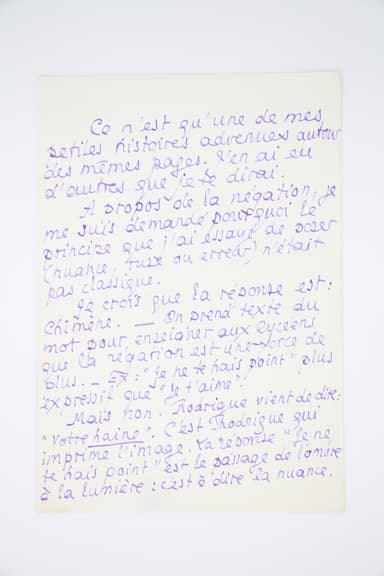 Ce n'est qu'une de mes
petites histoires advenues autour
des mêmes pages. J'en ai eu
d'autres que je te dirai.
A propos de la négation, je
me suis demandé pourquoi le
principe que j'ai essayé de poser
(nuance, ruse ou erreur) n'était
pas classique.
Je crois que la réponse est :
Chimène. — On prend texte du
mot pour enseigner aux lycéens
que la négation est une force de
plus. — Ex : "Je ne te hais point" plus
expressif que "Je t'aime".
Mais non. Rodrigue vient de dire :
"Votre haine". C'est Rodrigue qui
imprime l'image. La réponse "Je ne
te hais point" est le passage de l'ombre
à la lumière : c'est à dire la nuance.